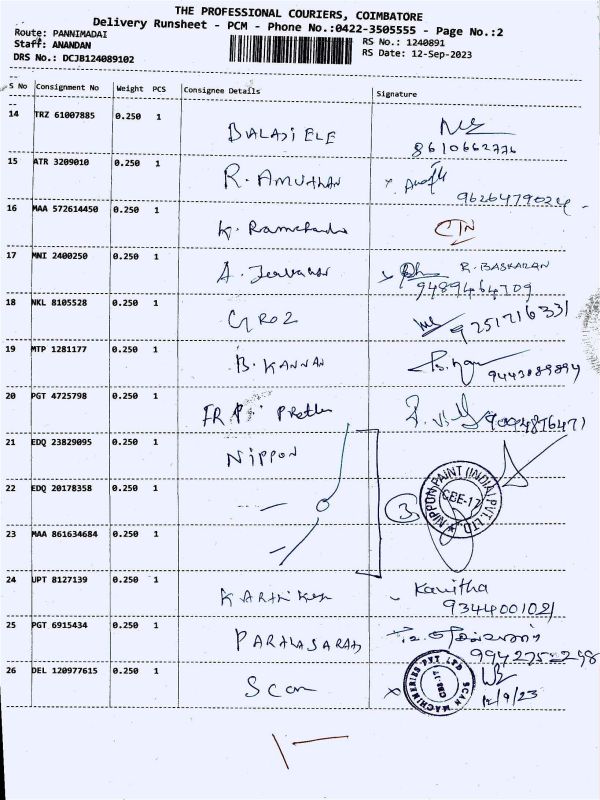 THE PROFESSIONAL COURIERS, COIMBATORE
Delivery Runsheet - PCM - Phone No.:0422-3505555 - Page No.:2
Route: PANNIMADAI
Staff: ANANDAN
DRS No.: DCJB124089102
RS No.: 1240891
RS Date: 12-Sep-2023
S No Consignment No Weight PCS Consignee Details Signature
14 TRZ 61007885 0.250 1 BALAJI ELE 8610662776
15 ATR 3209010 0.250 1 R. AMUTHAN 9626479024
16 MAA 572614450 0.250 1 K. Ramchandra CTN
17 MNI 2400250 0.250 1 A. R. BASKARAN
9489464709
18 NKL 8105528 0.250 1 GROZ 9751716331
19 MTP 1281177 0.250 1 B. KANNAN 9443089894
20 PGT 4725798 0.250 1 9094876471
21 EDQ 23829095 0.250 1 NIPPON
22 EDQ 20178358 0.250 1 3 NIPPON PAINT (INDIA) PVT LTD CBE-17
23 MAA 861634684 0.250 1
24 UPT 8127139 0.250 1 Kavitha
9344001021
25 PGT 6915434 0.250 1 9942752298
26 DEL 120977615 0.250 1 Scan SCAN MACHINERIES PVT LTD CBE-17 12/9/23